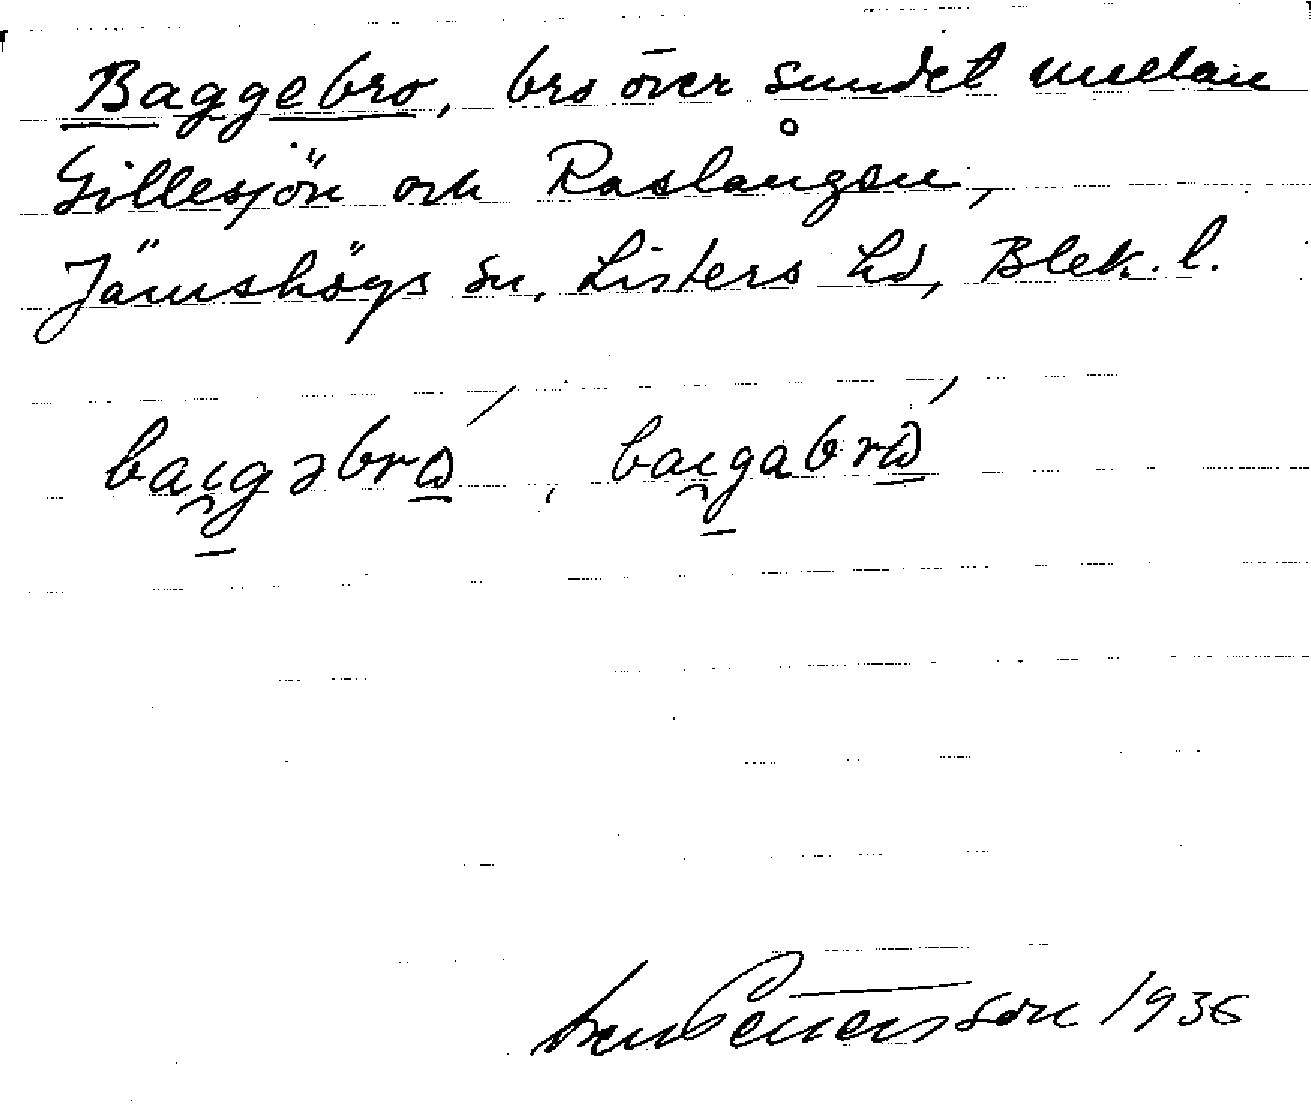 Baggebro, bro över sundet mellan
Gillesjön och Raslången,
Jämshögs sn, Listers hd, Blek. l.
Sven Pettersson 1936